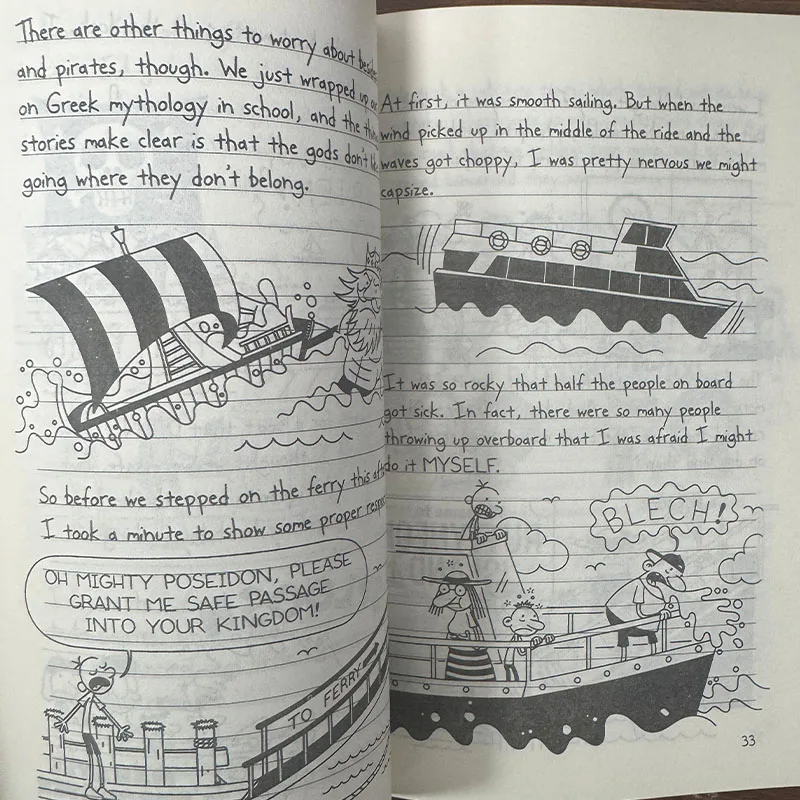 There are other things to worry about
and pirates, though. We just wrapped up
on Greek mythology in school, and the
stories make clear is that the gods don't
going where they don't belong.
So before we stepped on the ferry this
I took a minute to show some proper
OH MIGHTY POSEIDON, PLEASE
GRANT ME SAFE PASSAGE
INTO YOUR KINGDOM!
TO FERRY
At first, it was smooth sailing. But when the
wind picked up in the middle of the ride and the
waves got choppy, I was pretty nervous we might
capsize.
It was so rocky that half the people on board
got sick. In fact, there were so many people
throwing up overboard that I was afraid I might
do it MYSELF.
BLECH!
33